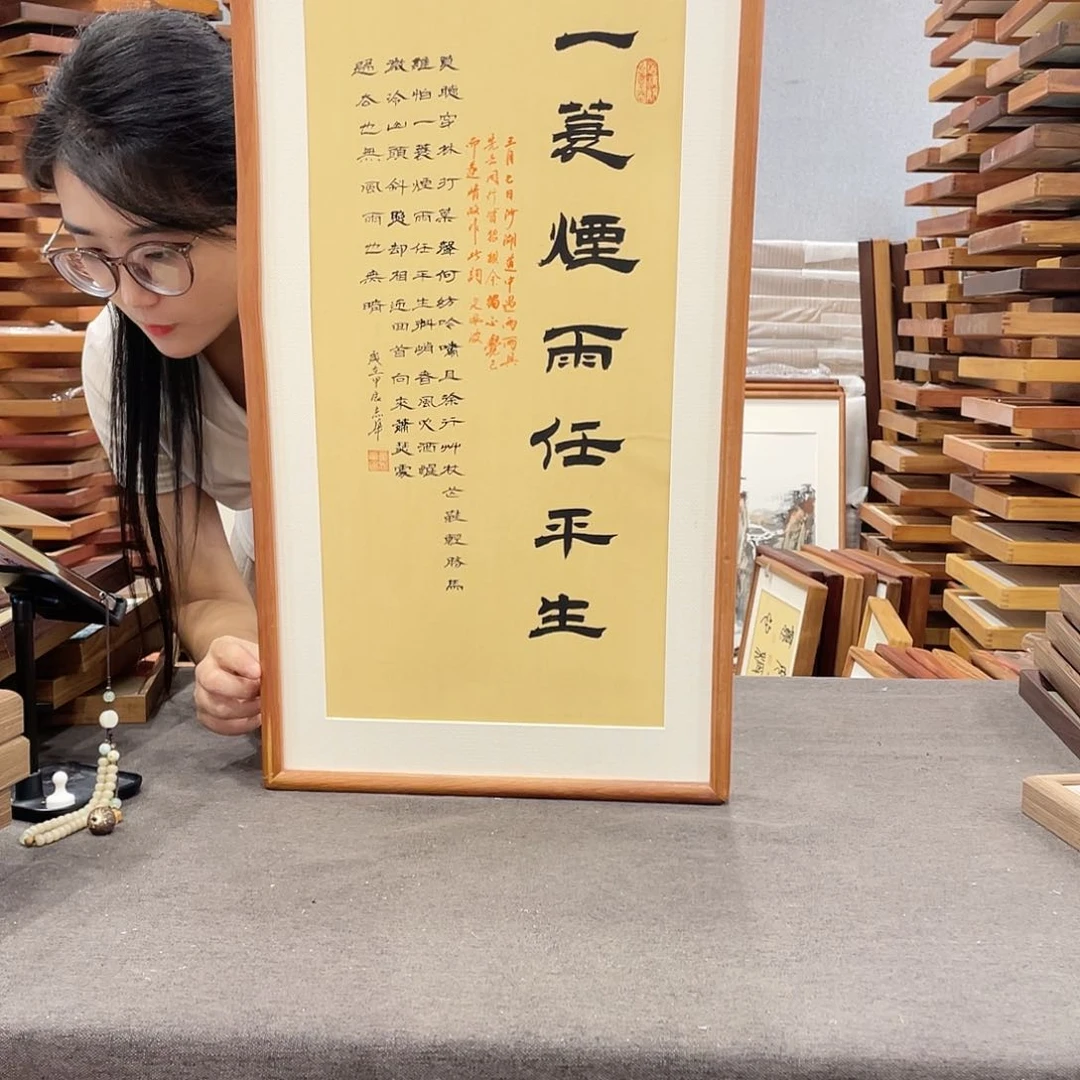 一蓑煙雨任平生
三月七日沙湖道中遇雨雨具
先去同行皆狼狽余獨不覺已
而遂晴故作此詞 定風波
莫聽穿林打葉聲何妨吟嘯且徐行竹杖芒鞋輕勝馬
誰怕一蓑煙雨任平生料峭春風吹酒醒
微冷山頭斜照却相迎回首向來蕭瑟處
歸去也無風雨也無晴
歲在甲辰